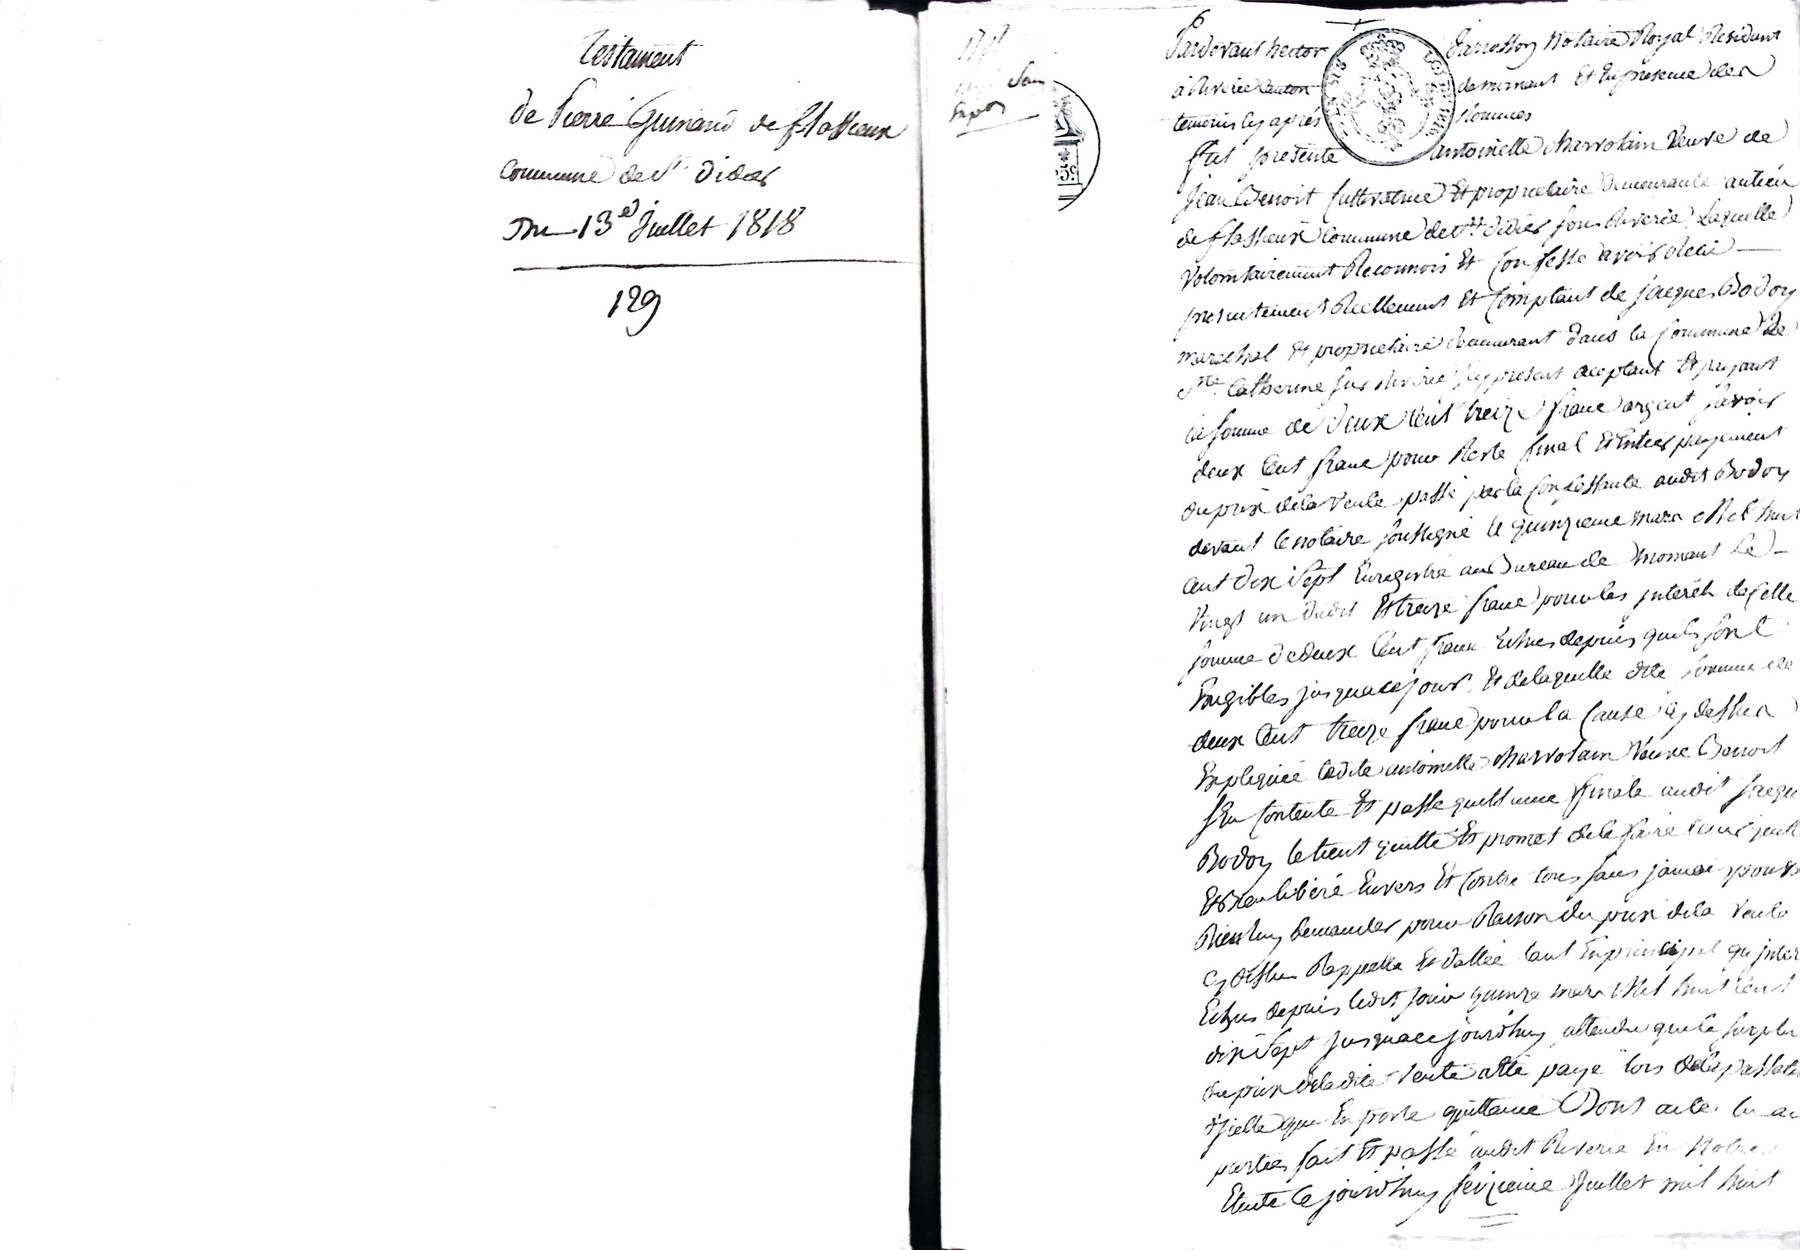 Testament
de Pierre Guinand de flassieux
commune de St didier
Du 13e Juillet 1818
129
Expon
25c
Pardevant hector Notaire Royal Résidant
à Riverie canton de mornant Et En presence des
temoins cy après Nommés
fut presente antoinette charvolain Veuve de
Jean Benoit Cultivatrice Et propriétaire demeurante au lieu
de flassieux Commune de St didier sous Riverie, Laquelle
Volontairement Reconnois Et Confesse avoir Recu
presentement Reellement Et Comptant de jacques Bodoy
marechal Et proprietaire demeurant dans la Commune de
Ste Catherine sur Riverie cy present aceptant Et payant
la somme de deux Cent treize franc argent savoir
deux Cent franc pour Reste final Et Entier payement
du prix de la Vente passé par la Confessante audit Bodoy
devant le notaire soussigné le quinzieme mars Mil huit
cent dix Sept Enregistré au Bureau de mornant Le
Vingt un dudit Et treize franc pour les interêts de Cette
somme de deux Cent franc Echus depuis quils sont
Exigibles jusqua ce jour. Et de laquelle dite somme de
deux Cent treize franc pour la Cause cy dessus
Expliquée ladite antoinette charvolain Veuve Benoit
sen Contente Et passe quittance finale audit jacque
Bodoy le tient quitte Et promet de le faire tenir quitte
Et Bien libéré Envers Et Contre tous sans jamais
Rien luy demander pour Raison du prix de la Vente
cy dessus Rappellée Et dattée tant En principal qu inter
Echus depuis ledit jour quinze mars Mil huit Cent
dix Sept jusqua ce jourdhuy attendu que le surplu
du prix de ladite Vente a été payé lors de la
dicelle qui En porte quittance Dont acte lu au
parties fait Et passé audit Riverie En Notre
Etude le jourdhuy seizieme Juillet mil huit